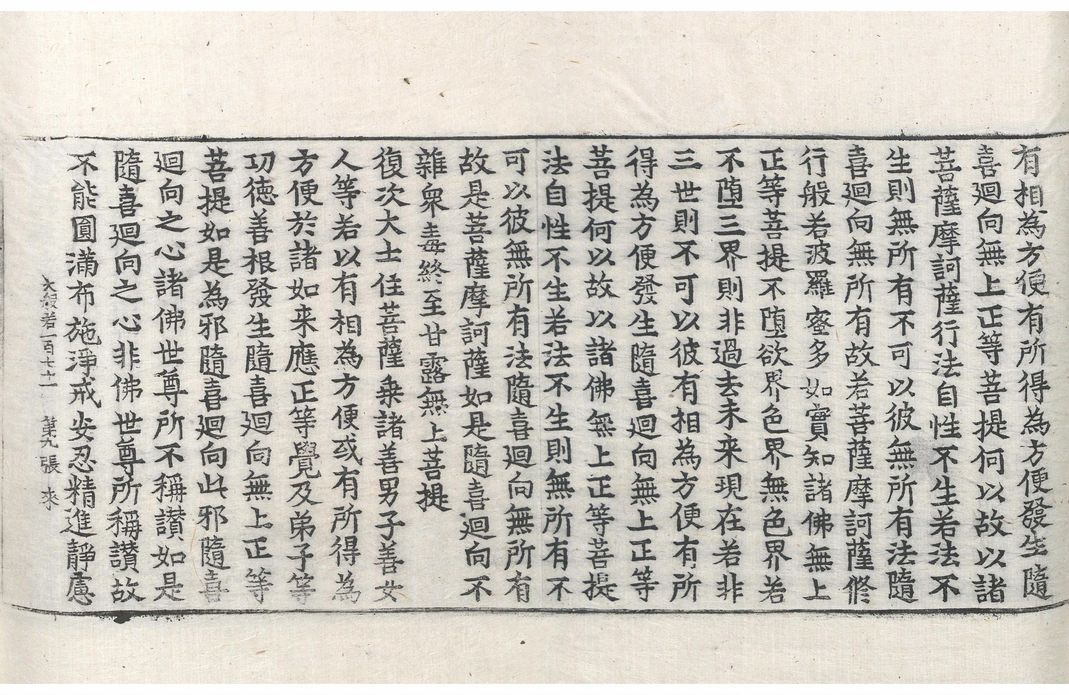 有相為方便有所得為方便發生隨
喜迴向無上正等菩提何以故以諸
菩薩摩訶薩行法自性不生若法不
生則無所有不可以彼無所有法隨
喜迴向無所有故若菩薩摩訶薩修
行般若波羅蜜多如實知諸佛無上
正等菩提不堕欲界色界無色界若
不堕三界則非過去未来現在若非
三世則不可以彼有相為方便有所
得為方便發生隨喜迴向無上正等
菩提何以故以諸佛無上正等菩提
法自性不生若法不生則無所有不
可以彼無所有法隨喜迴向無所有
故是菩薩摩訶薩如是隨喜迴向不
雜衆毒終至甘露無上菩提
復次大士住菩薩乗諸善男子善女
人等若以有相為方便或有所得為
方便於諸如来應正等覺及弟子等
功德善根發生隨喜迴向無上正等
菩提如是為邪隨喜迴向此邪隨喜
迴向之心諸佛世尊所不稱讃如是
隨喜迴向之心非佛世尊所稱讃故
不能圓滿布施淨戒安忍精進靜慮
大般若一百七十一 第九張 來